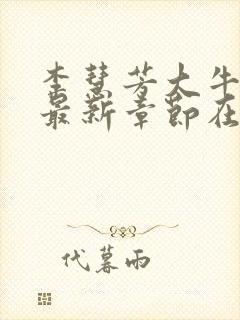 李慧芳大牛
最新章节在
代暮雨